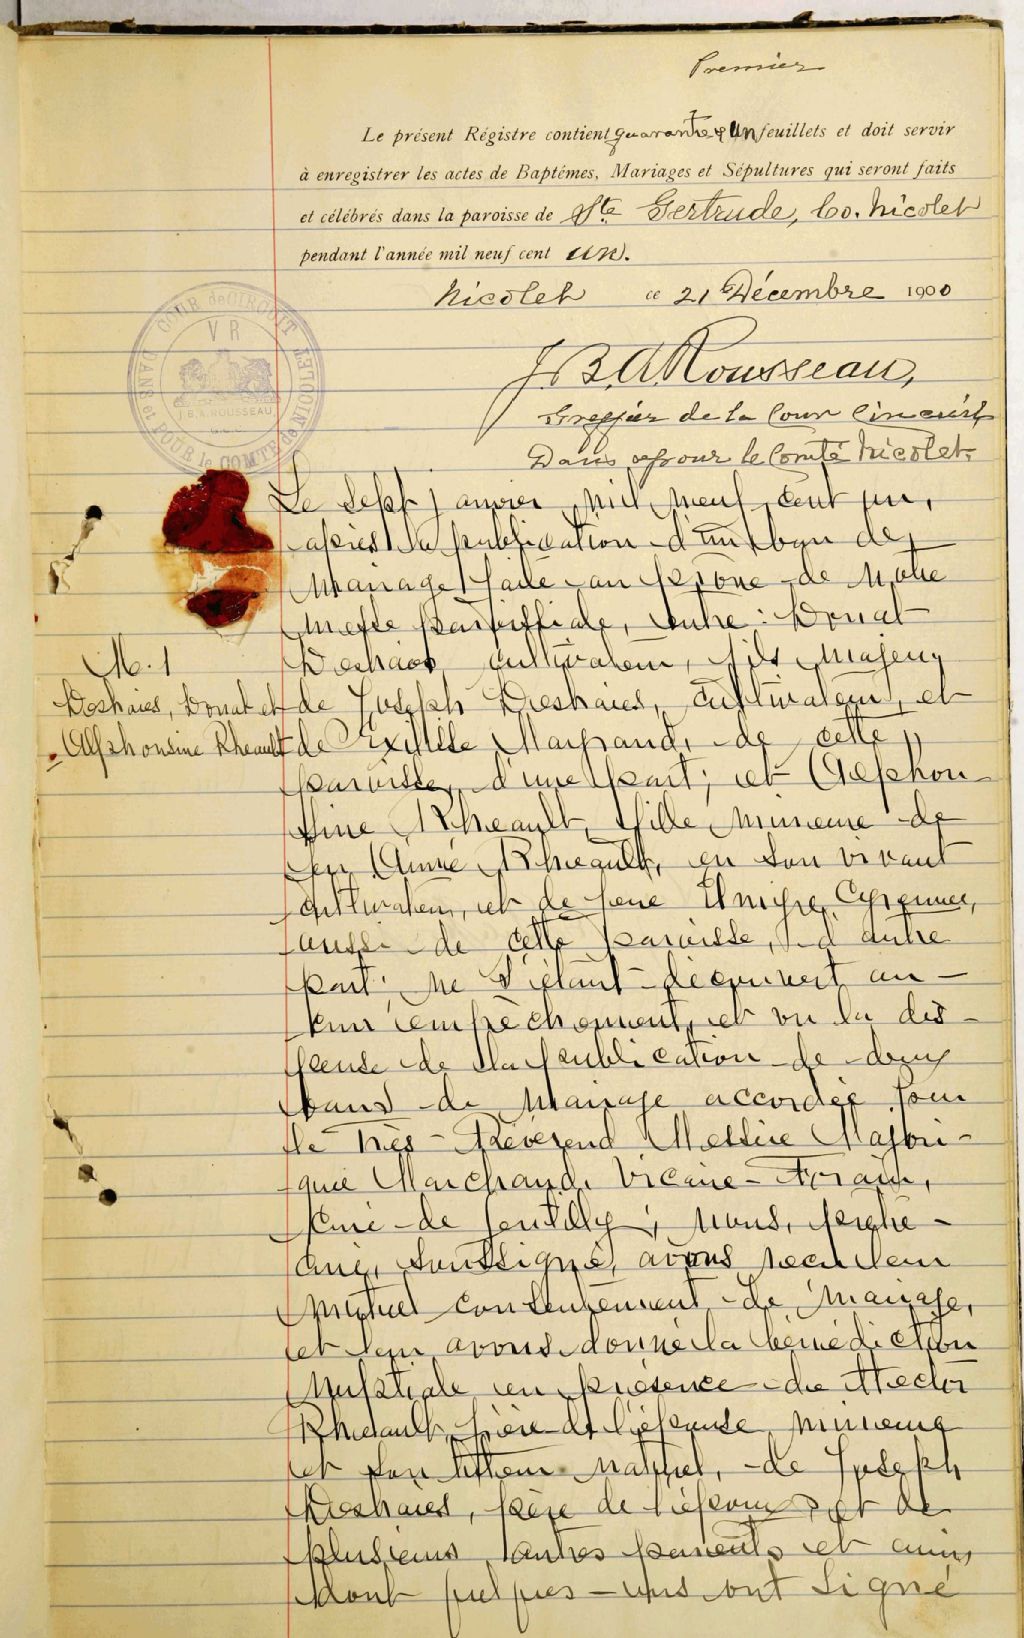 Premier
Le présent Régistre contient quarante & un feuillets et doit servir
à enregistrer les actes de Baptêmes, Mariages et Sépultures qui seront faits
et célébrés dans la paroisse de Ste Gertrude, Co. Nicolet
pendant l'année mil neuf cent un.
Nicolet ce 21 Décembre 1900
COUR de CIRCUIT DANS et POUR le COMTÉ de NICOLET
V R
J.B.A. ROUSSEAU
J.B.A Rousseau,
Greffier de la Cour Circuit
Dans et pour le Comté Nicolet.
Le sept janvier mil neuf cent un,
après la publication d'un ban de
mariage faite au prône de notre
messe paroissiale, entre: Donat
Deshaies cultivateur, fils majeur
M. 1
Deshaies, Donat et
Alphonsine Rheault
de Joseph Deshaies, cultivateur, et
de Exilise Marchand, de cette
paroisse, d'une part; et Alphon-
sine Rheault, fille mineure de
feu Aimé Rheault, en son vivant
cultivateur, et de feue Cyrenne,
aussi de cette paroisse, d'autre
part; ne s'étant découvert au-
cun empêchement, et vu la dis-
pense de la publication de deux
bans de mariage accordée par
le Très-Révérend Messire Majori-
que Marchand, Vicaire-Forain,
curé de Gentilly; nous, prêtre-
curé, soussigné, avons reçu leur
mutuel consentement de mariage,
et leur avons donné la bénédiction
nuptiale en présence de Hector
Rheault, frère de l'épouse mineure
et son tuteur naturel, de Joseph
Deshaies, père de l'époux et de
plusieurs autres parents et amis
dont quelques-uns ont signé